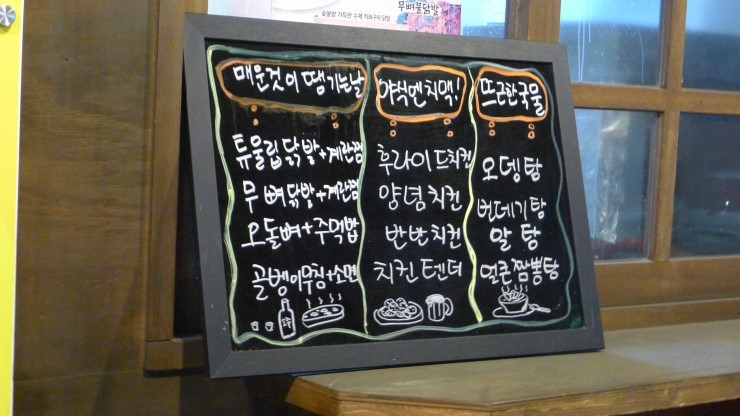 숯불향 가득한 수제 직화구이 닭발
무뼈불닭발
매운것이 땡기는날
튜울립닭발+계란찜
무뼈닭발+계란찜
오돌뼈+주먹밥
골벵이무침+소면
야식엔 치맥!
후라이드치킨
양념치킨
반반치킨
치킨텐더
뜨근한국물
오뎅탕
번데기탕
알탕
얼큰짬뽕탕